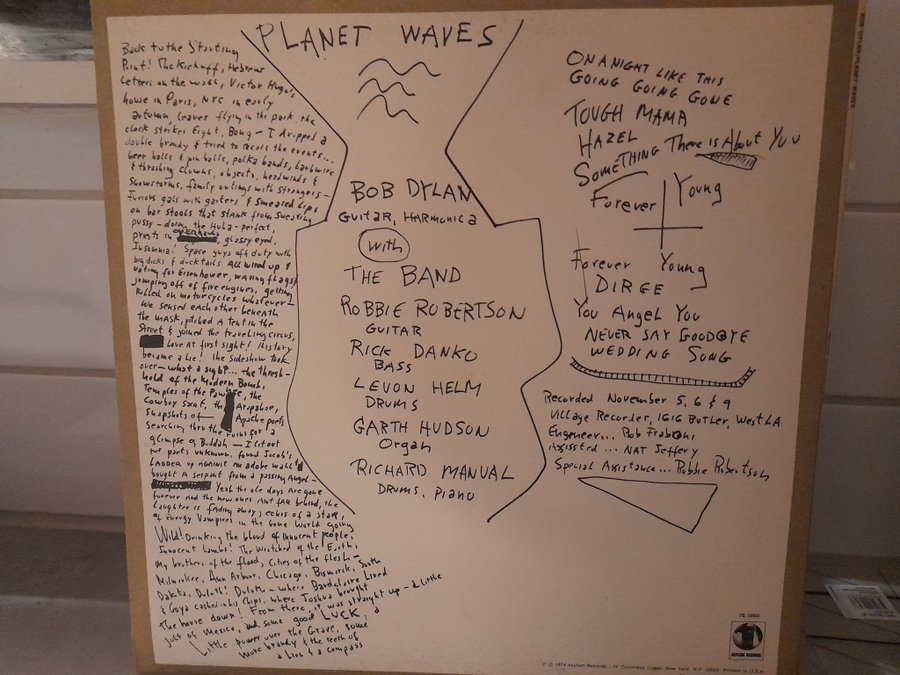 PLANET WAVES
Back to the Starting
Point! The Kickoff, Hebrew
Letters on the wall, Victor Hugo's
house in Paris, NYC in early
autumn, leaves flying in the park, the
clock strikes Eight. Bong - I dropped a
double brandy & tried to recall the events...
beer halls & pin balls, polka bands, barbwire
& thrashing clowns, objects, headwinds &
Snowstorms, family outings with strangers -
Furious gals with garters & smeared Lips
on bar stools that stank from sweating
pussy - doing the Hula - perfect,
priests in overhauls, glassy eyed,
Insomnia! Space guys off duty with
big dicks & ducktails All wired up &
voting for Eisenhower, waving flags &
jumping off of fire engines, getting
killed on motorcycles whatever -
We sensed each other beneath
the mask, pitched a tent in the
Street & joined the traveling circus,
Love at first sight! History
became a Lie! the sideshow took
over - what a sight... the thresh-
hold of the Modern Bomb,
Temples of the Pawnee, the
Cowboy Saint, the Arapahoe,
Snapshots of Apache poets
Searching thru the ruins for a
glimpse of Buddah - I lit out
for parts unknown, found Jacob's
Ladder up against an adobe wall &
bought a serpent from a passing Angel -
Yeah the ole days Are gone
forever And the new ones Aint fAR behind, the
Laughter is fading away, echos of a star,
of Energy Vampires in the Gone World going
Wild! Drinking the blood of innocent people,
Innocent Lambs! The Wretched of the Earth,
My brothers of the flood, Cities of the flesh -
Milwaukee, Ann Arbor, Chicago, Bismarck, South
Dakota, Duluth! Duluth - where Baudelaire Lived
& Goya cashed in his Chips, where Joshua brought
the house down! From there, it was straight up - a little
jolt of Mexico, and some good LUCK, a
Little power over the Grave, some
more brandy & the teeth of
a Lion & a compass
BOB DYLAN
Guitar, HARMONICA
with
THE BAND
ROBBIE ROBERTSON
GUITAR
RICK DANKO
BASS
LEVON HELM
DRUMS
GARTH HUDSON
Organ
RICHARD MANUAL
DRUMS, PIANO
ON A NIGHT LIKE THIS
GOING GOING GONE
TOUGH MAMA
HAZEL
SOMETHING There is About You
Forever Young
Forever Young
DIRGE
You Angel You
NEVER SAY GOODBYE
WEDDING SONG
Recorded November 5, 6 & 9
Village Recorder, 1616 Butler, West LA
Engineer... Rob Fraboni
Assisted... NAT Jeffery
Special Assistance... Robbie Robertson
7E-1003
ASYLUM RECORDS
© ℗ 1974 Asylum Records, 15 Columbus Circle, New York, N.Y. 10023 Printed in U.S.A.